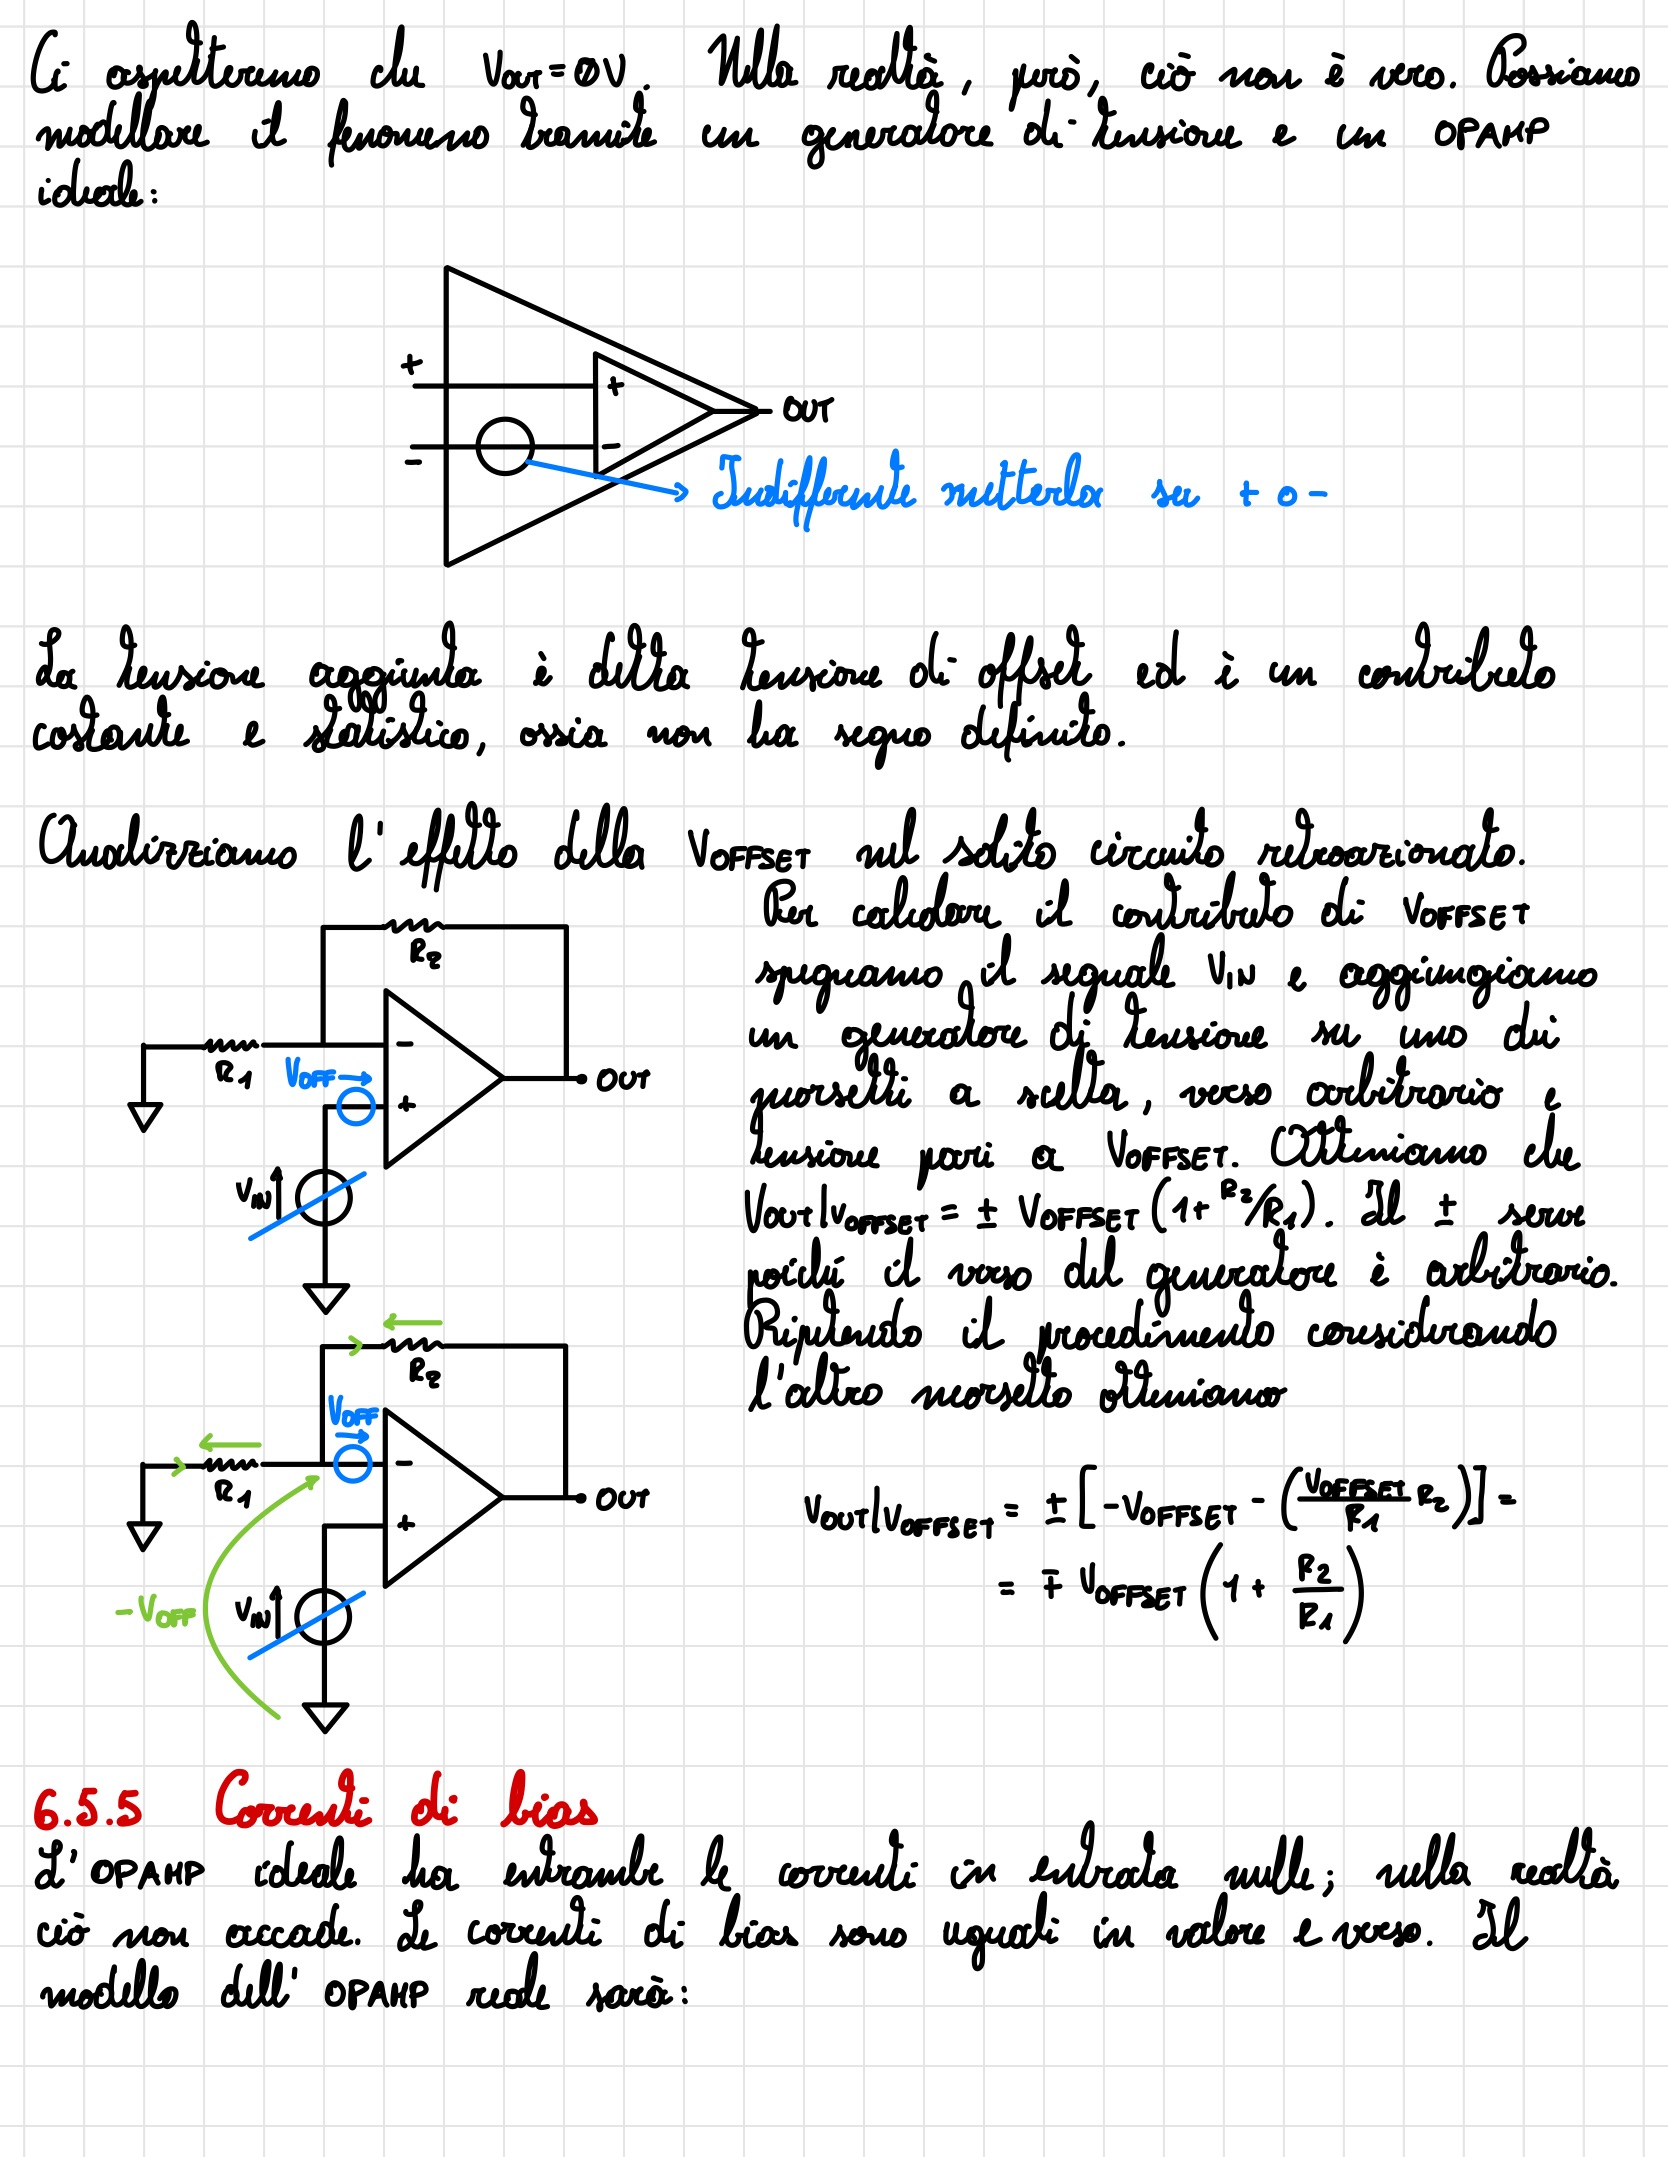 Ci aspetteremo che Vout=0V. Nella realtà, però, ciò non è vero. Possiamo
modellare il fenomeno tramite un generatore di tensione e un OPAMP
ideale:
+
+
OUT
-
-
Indifferente metterla su + o -
La tensione aggiunta è detta tensione di offset ed è un contributo
costante e statistico, ossia non ha segno definito.
Analizziamo l'effetto della VOFFSET nel solito circuito retroazionato.
R2
-
R1
VOFF
OUT
+
VIN
Per calcolare il contributo di VOFFSET
spegnamo il segnale VIN e aggiungiamo
un generatore di tensione su uno dei
morsetti a scelta, verso arbitrario e
tensione pari a VOFFSET. Otteniamo che
VOUT|VOFFSET = ± VOFFSET (1+ R2/R1). Il ± serve
poiché il verso del generatore è arbitrario.
Ripetendo il procedimento considerando
l'altro morsetto otteniamo
R2
VOFF
-
R1
OUT
+
-VOFF
VIN
VOUT|VOFFSET = ± [-VOFFSET - (VOFFSET/R1 R2)] =
= ∓ VOFFSET (1 + R2/R1)
6.5.5 Correnti di bias
L'OPAMP ideale ha entrambe le correnti in entrata nulle; nella realtà
ciò non accade. Le correnti di bias sono uguali in valore e verso. Il
modello dell'OPAMP reale sarà: